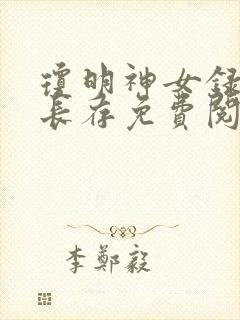 瓊明神女錄
長存免費閱
李鄭毅